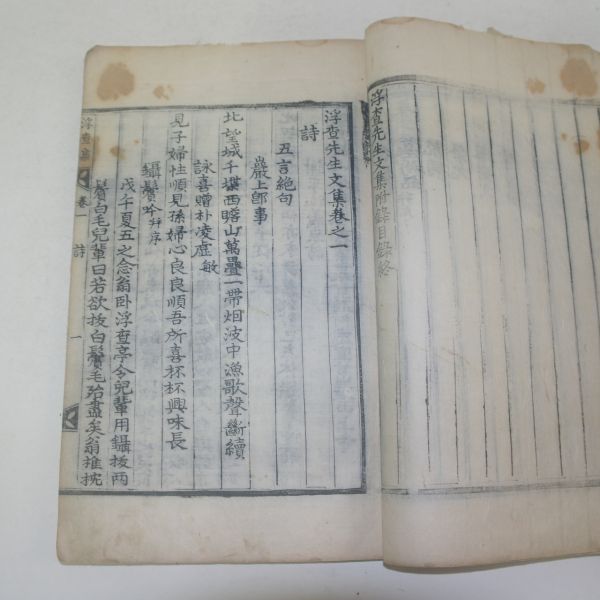 浮査先生文集附錄目錄終
浮査先生文集卷之一
詩
五言絶句
巖上卽事
北望城千堞西瞻山萬疊一帶烟波中漁歌聲斷續
詠喜贈朴凌虛敏
見子婦性順見孫婦心良良順吾所喜杯杯興味長
鑷鬢吟幷序
戊午夏五之念翁卧浮查亭令兒輩用鑷拔兩
鬢白毛兒輩曰若欲拔白鬢毛殆盡矣翁推枕
浮査集
卷一
詩
一